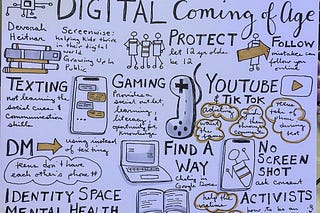 DIGITAL Coming of Age
Devorah
Heitner
Screenwise:
helping kids thrive
in their digital
world
Growing Up in
Public
PROTECT
let 12 year olds
be 12
FOLLOW
mistakes can
follow you
online
TEXTING
not learning the
social cues &
communication
skills
GAMING
Provides a
social outlet,
learning,
literacy
opportunity for
knowledge
YOUTUBE
& TIK TOK
DM
using instead
of texting
teens don't have
each other's phone #
FIND A
WAY
NO
SCREEN
SHOT
ask consent
IDENTITY SPACE
MENTAL HEALTH
help the
ACTIVISTS
how to be an